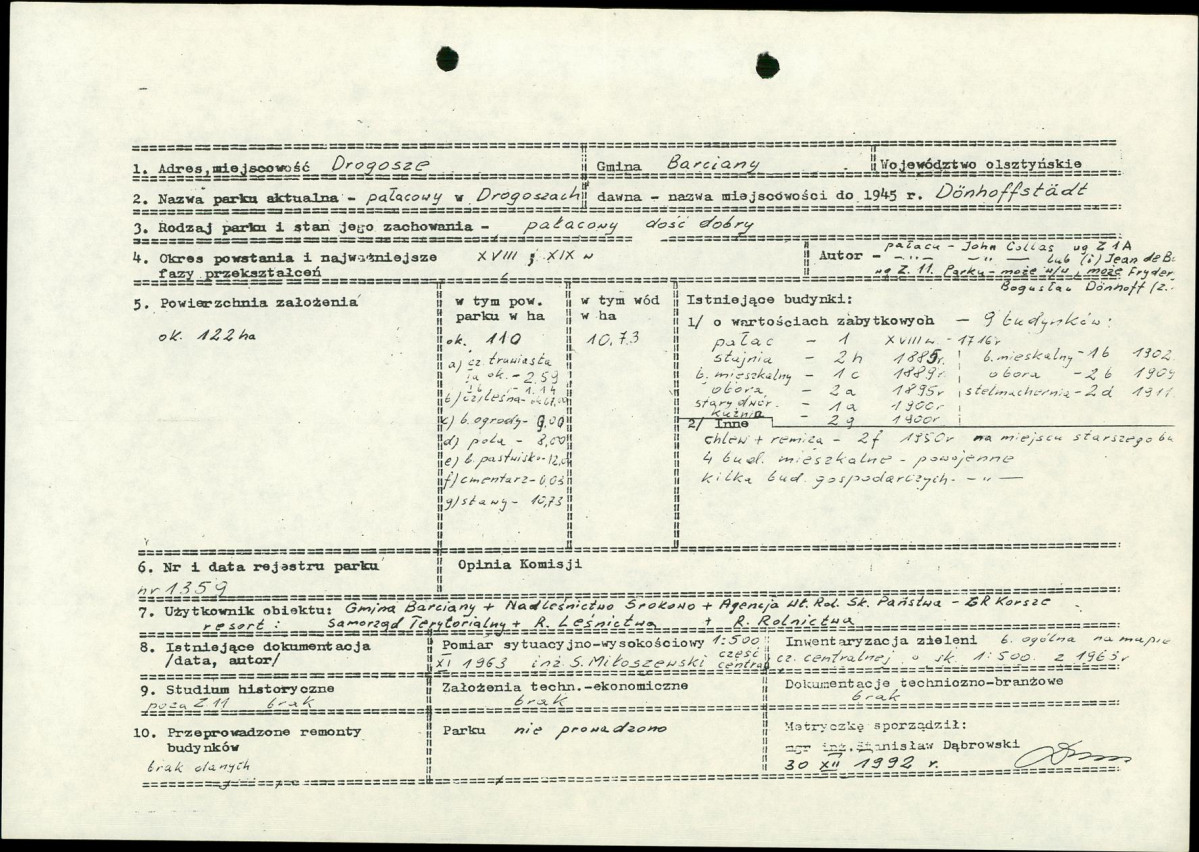 1. Adres, miejscowość Drogosze Gmina Barciany Województwo olsztyńskie
2. Nazwa parku aktualna - pałacowy w Drogoszach dawna - nazwa miejscowości do 1945 r. Dönhoffstädt
3. Rodzaj parku i stan jego zachowania - pałacowy dość dobry
4. Okres powstania i najważniejsze fazy przekształceń XVIII i XIX w
Autor - pałacu - John Collas wg Z 1A
- " - - " - lub (i) Jean de B
wg Z. 11. Parku - może w/w, może Fryder
Bogusław Dönhoff /z.
5. Powierzchnia założenia
ok. 122 ha
w tym pow.
parku w ha
ok. 110
a) cz. trawiasta
1a ok. - 2.59
1b - 1.14
b) cz. leśna - ok 67.00
c) b. ogrody - 9,00
d) pola - 8,00
e) b. pastwisko - 12,0
f) cmentarz - 0,03
g) stawy - 10,73
w tym wód
w ha
10.73
Istniejące budynki:
1/ o wartościach zabytkowych - 9 budynków:
pałac - 1 XVIII w - 1716r
stajnia - 2h 1885r. b. mieskalny - 1b 1902
b. mieszkalny - 1c 1889r. obora - 2b 1909
obora - 2a 1895r stelmachernia - 2d 1911
stary dwór - 1a 1900r
kuźnia - 2g 1900r
2/ Inne
chlew + remiza - 2f 1950r na miejscu starszego bu
4 bud. mieszkalne - powojenne
kilka bud. gospodarczych - " -
6. Nr i data rejestru parku
nr 1359
Opinia Komisji
7. Użytkownik obiektu: Gmina Barciany + Nadleśnictwo Srokowo + Agencja Wł. Rol. Sk. Państwa - GR Korsze
resort: Samorząd Terytorialny + R. Leśnictwa + R. Rolnictwa
8. Istniejące dokumentacja
/data, autor/
Pomiar sytuacyjno-wysokościowy 1:500
XI 1963 inż S. Miłoszewski część central
Inwentaryzacja zieleni b. ogólna na mapie
cz. centralnej o sk. 1:500 z 1963r
9. Studium historyczne
poza Z 11 brak
Założenia techn.-ekonomiczne
brak
Dokumentacje techniczno-branżowe
brak
10. Przeprowadzone remonty
budynków
brak danych
Parku nie prowadzono
Metryczkę sporządził:
mgr inż. Stanisław Dąbrowski
30 XII 1992 r.